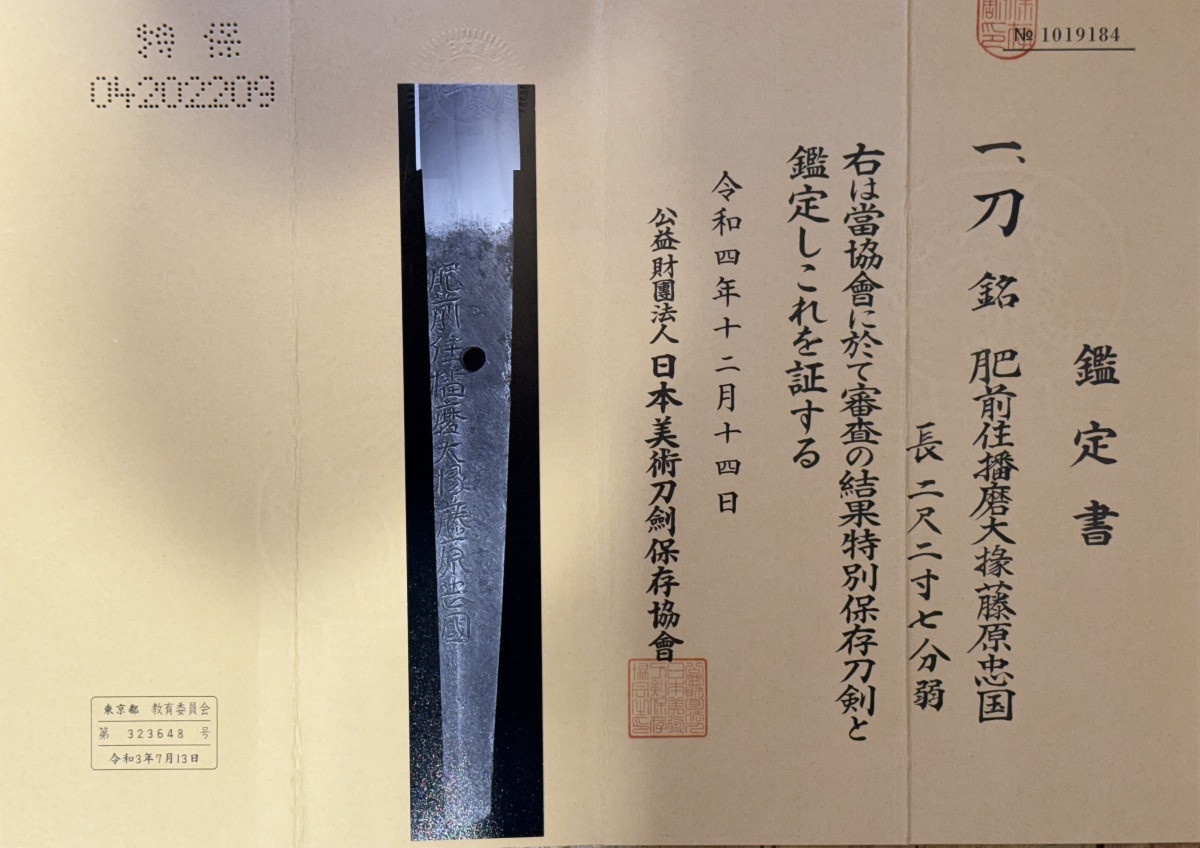 № 1019184
鑑定書
一、刀 銘 肥前住播磨大掾藤原忠国
長 二尺二寸七分弱
右は當協會に於て審査の結果特別保存刀剣と
鑑定しこれを証する
令和四年十二月十四日
公益財團法人 日本美術刀劍保存協會
肥前住播磨大掾藤原忠國
特 保
04202209
東京都 教育委員会
第 323648 号
令和3年7月13日